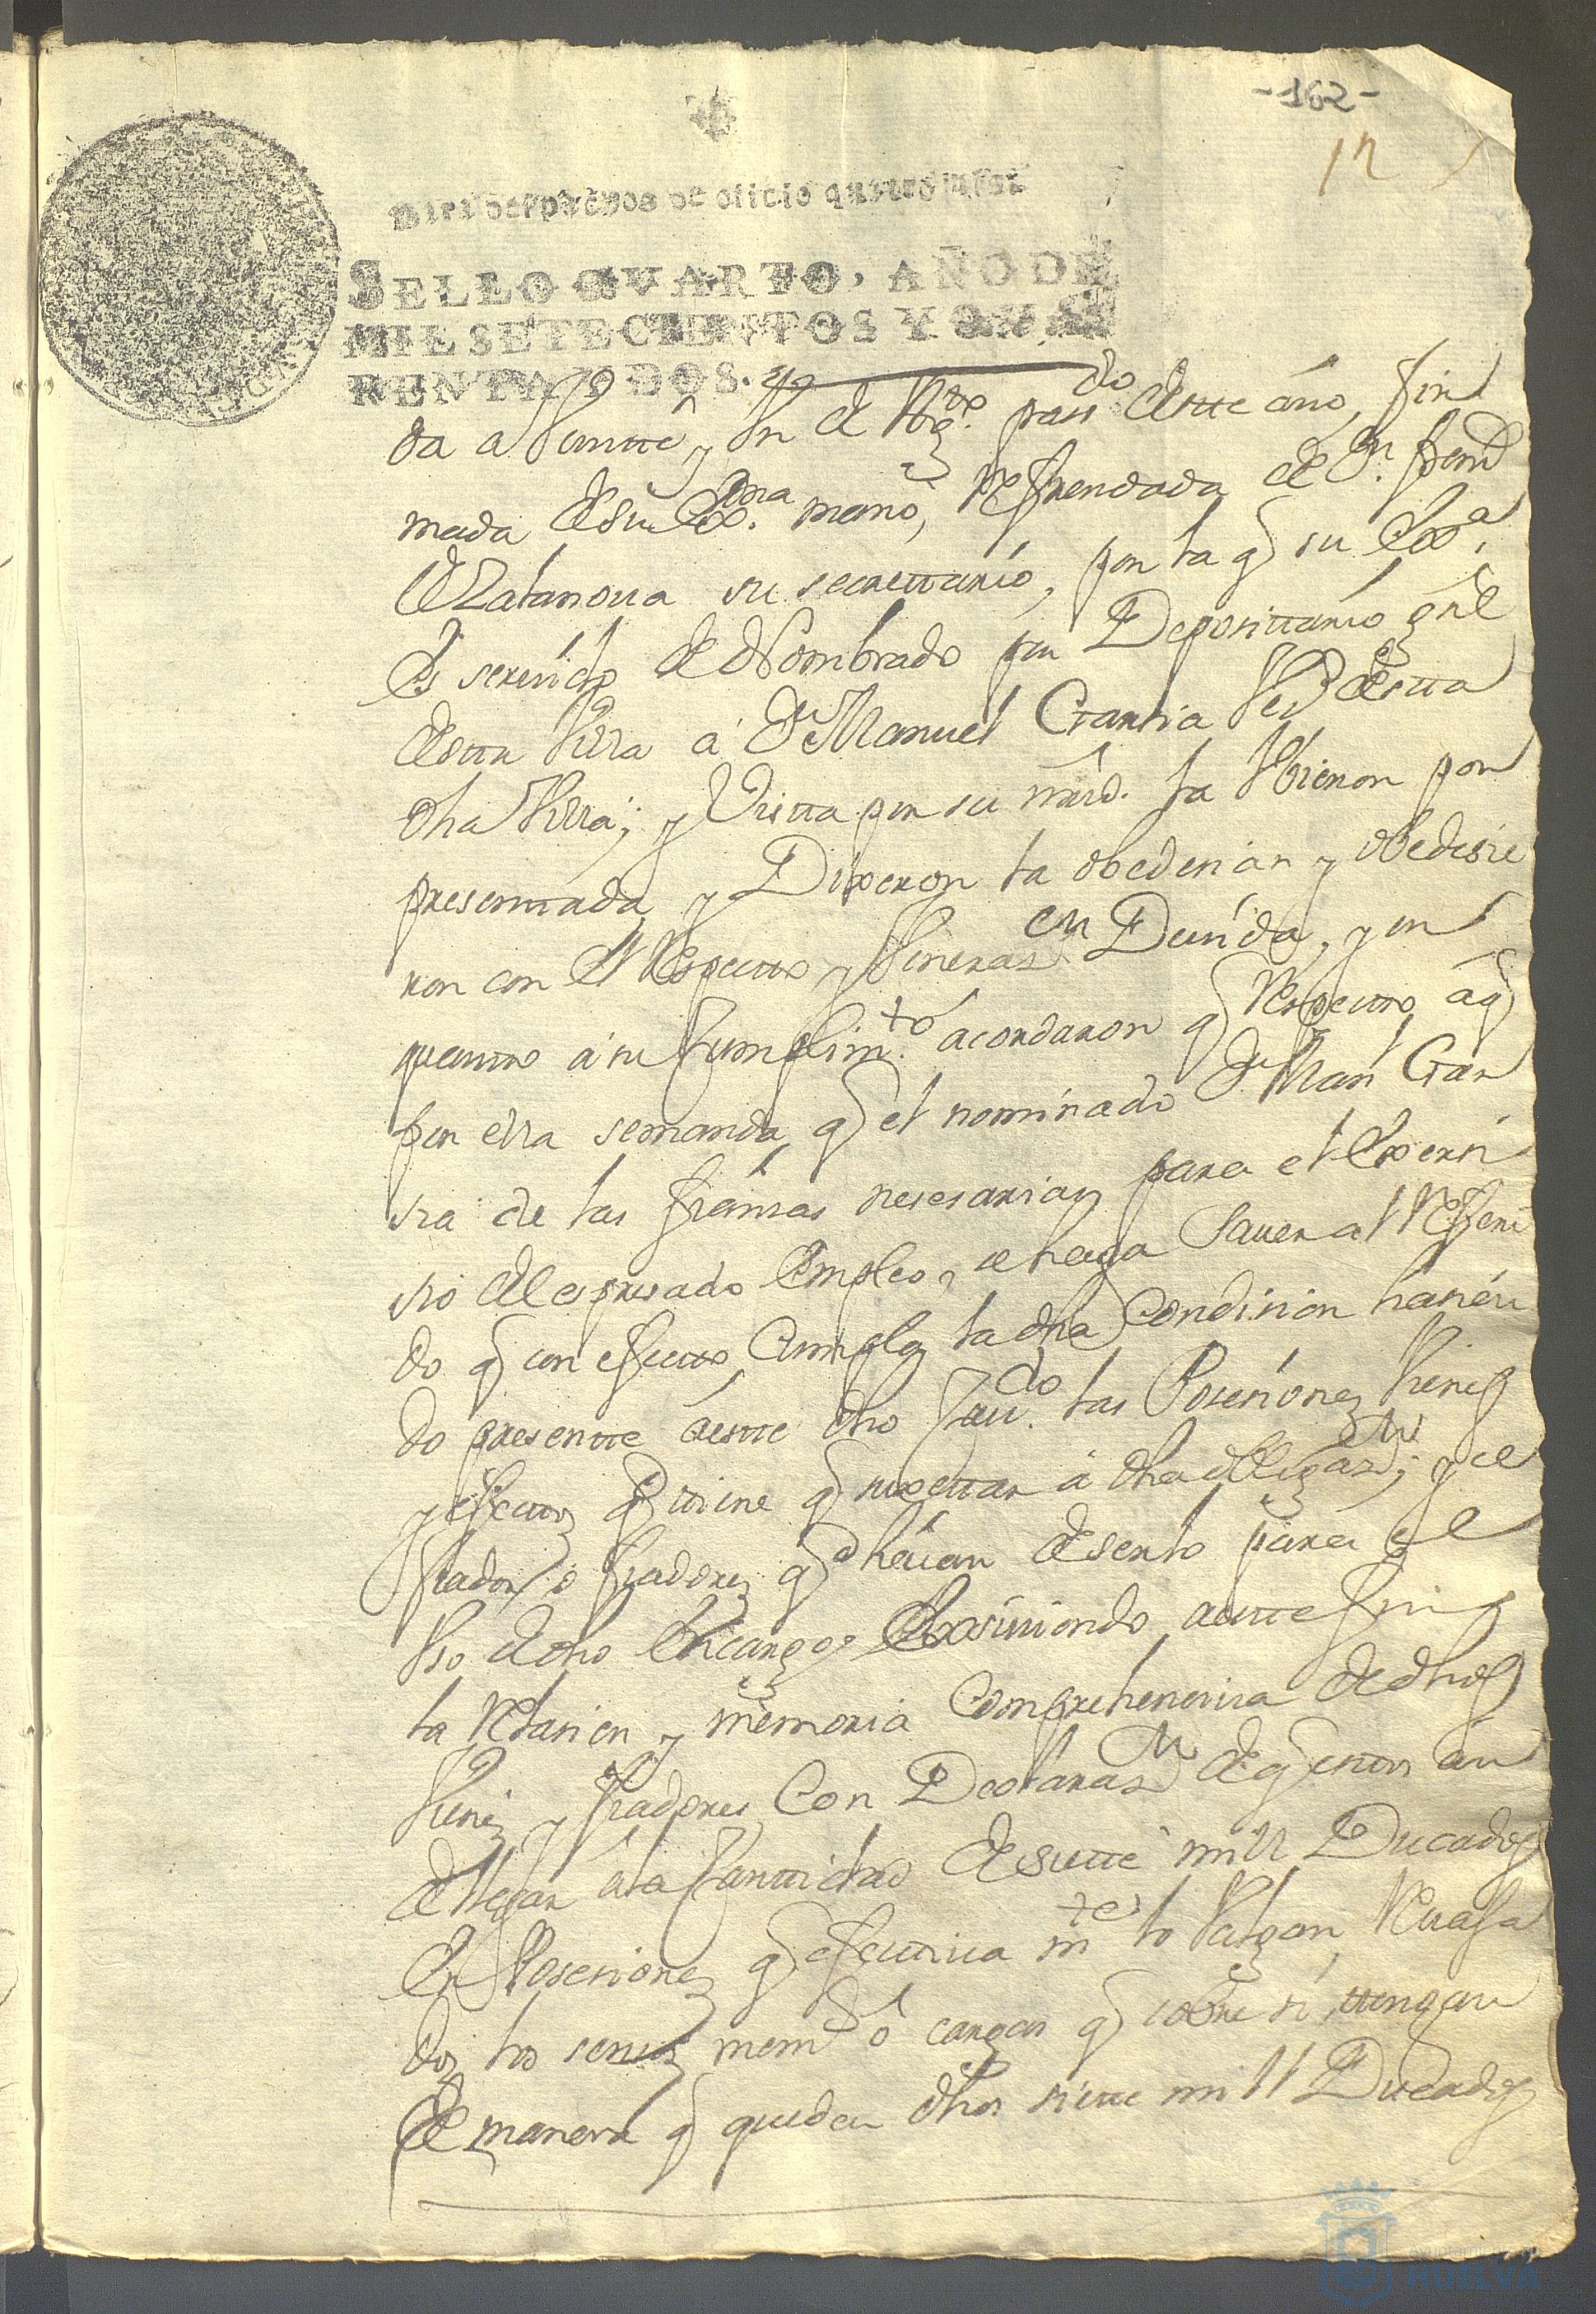 -162-
12
Para despachos de oficio quatro mrs.
SELLO QVARTO, AÑO DE
MIL SETECIENTOS Y QVA
RENTA Y DOS.
da a Veintte y Un de Agto. passdo deste año, fir
mada de su Exma. mano, Refrendada de Dn. frando
de Zatanova su secrettario, por la q su Exa.
es servido de Nombrado por Deposittario gnl
desta Villa á Dn Manuel Garsia Vezo desta
dha Villa; y Vista por su mrd. la Vbieron por
presentada, y Dixeron la obedecian y obedesie
ron con el Respecto y Venerason Devida, y en
quanto á su Cumplimto. acordaron q Respecto á q
por ella semanda, q el nominado Dn Man Gar
sia de las fiansas nesesarias para el Exersi
sio del espresado Empleo, se haga Saver al Referi
do q con efecto, Cumpla la dha Condision hasien
do presente á este dho Jusdo. las Posesiones Vienes
y efectos q tiene q sujettar á dha obligason; y el
fiador o fiadores q hauian de serlo para el
Vso de dho Encargo, Exsiviendo a este fin
la Relasion y memoria Comprehensiva de dhos
Vienes y fiadores, Con Declarason de q estos an
de llegar á la Canttidad de siette mill Ducados
En Posesiones q efectivamte lo Valgan, Revaja
dos los sensos, memo ó cargas q sobre si, ttengan
De manera q queden dhos siette mill Ducados
Ayuntamiento
HUELVA